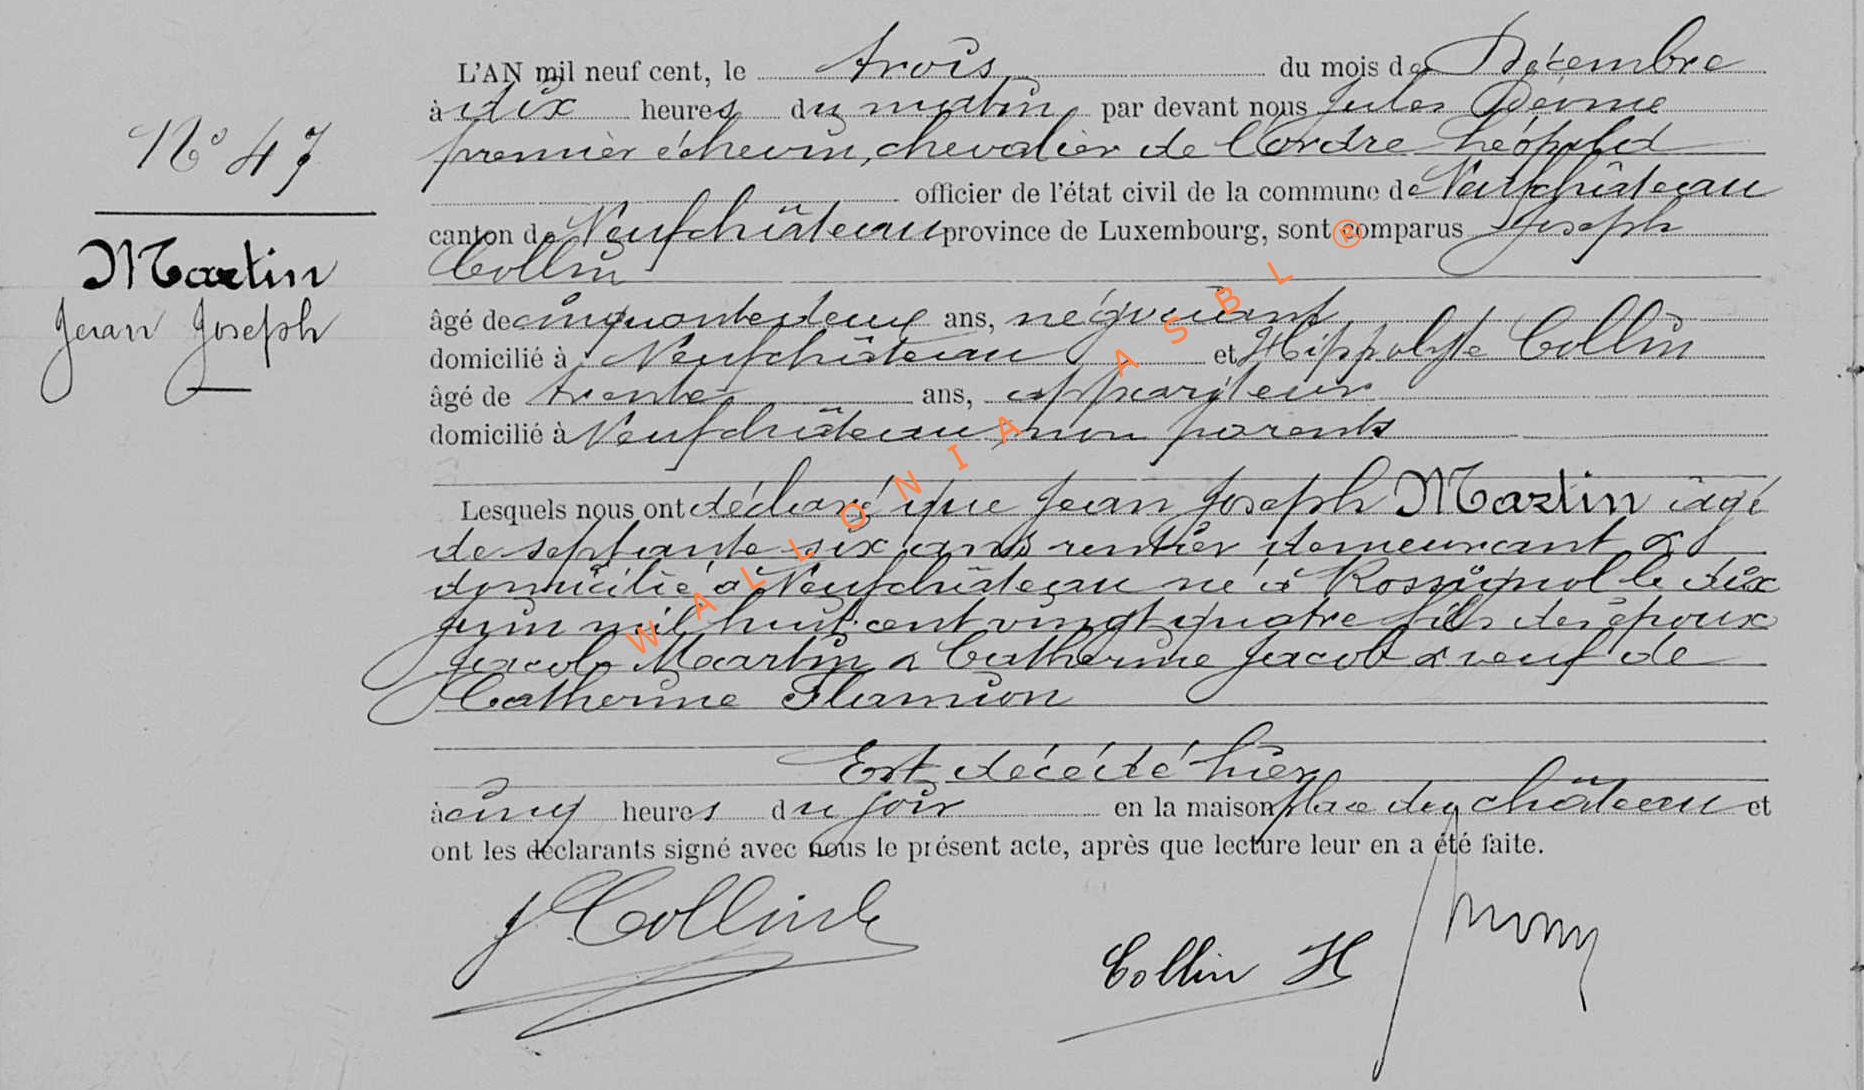 N° 47
Martin
Jean Joseph
L'AN mil neuf cent, le trois du mois de Décembre
à dix heures du matin par devant nous Jules
premier échevin, chevalier de l'Ordre Léopold
officier de l'état civil de la commune de Neufchâteau
canton de Neufchâteau province de Luxembourg, sont comparus Joseph
Collin
âgé de cinquante deux ans, négociant
domicilié à Neufchâteau et Hippolyte Collin
âgé de trente ans, appariteur
domicilié à Neufchâteau, non parents
Lesquels nous ont déclaré que Jean Joseph Martin âgé
de septante six ans rentier demeurant &
domicilié à Neufchâteau né à Rossignol le dix
juin mil huit cent vingt quatre fils des époux
Jacob Martin & Catherine Jacob & veuf de
Catherine Flamion
Est décédé hier
à cinq heures du soir en la maison place du château et
ont les déclarants signé avec nous le présent acte, après que lecture leur en a été faite.
J Collin
Collin H
WALLONIA ASBL ®